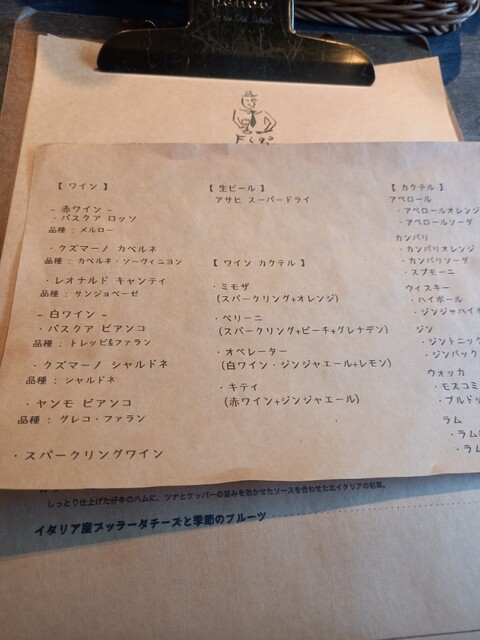 Penco
Figo
【 ワイン 】
- 赤ワイン -
・パスクア ロッソ
品種 : メルロー
・クズマーノ カベルネ
品種 : カベルネ・ソーヴィニヨン
・レオナルド キャンティ
品種 : サンジョベーゼ
- 白ワイン -
・パスクア ビアンコ
品種 : トレッビ&ファラン
・クズマーノ シャルドネ
品種 : シャルドネ
・ヤンモ ビアンコ
品種 : グレコ・ファラン
・スパークリングワイン
【 生ビール 】
アサヒ スーパードライ
【 ワイン カクテル 】
・ミモザ
(スパークリング+オレンジ)
・ベリーニ
(スパークリング+ピーチ+グレナデン)
・オペレーター
(白ワイン・ジンジャエール+レモン)
・キティ
(赤ワイン+ジンジャエール)
【 カクテル 】
アペロール
・アペロールオレンジ
・アペロールソーダ
カンパリ
・カンパリオレンジ
・カンパリソーダ
・スプモーニ
ウイスキー
・ハイボール
・ジンジャハイボ
ジン
・ジントニック
・ジンバック
ウォッカ
・モスコミ
・ブルドッ
ラム
・ラム
・ラム
しっとり仕上げた仔牛のハムに、ツナとケッパーの旨みを効かせたソースを合わせた北イタリアの前菜。
イタリア産ブッラータチーズと季節のフルーツ